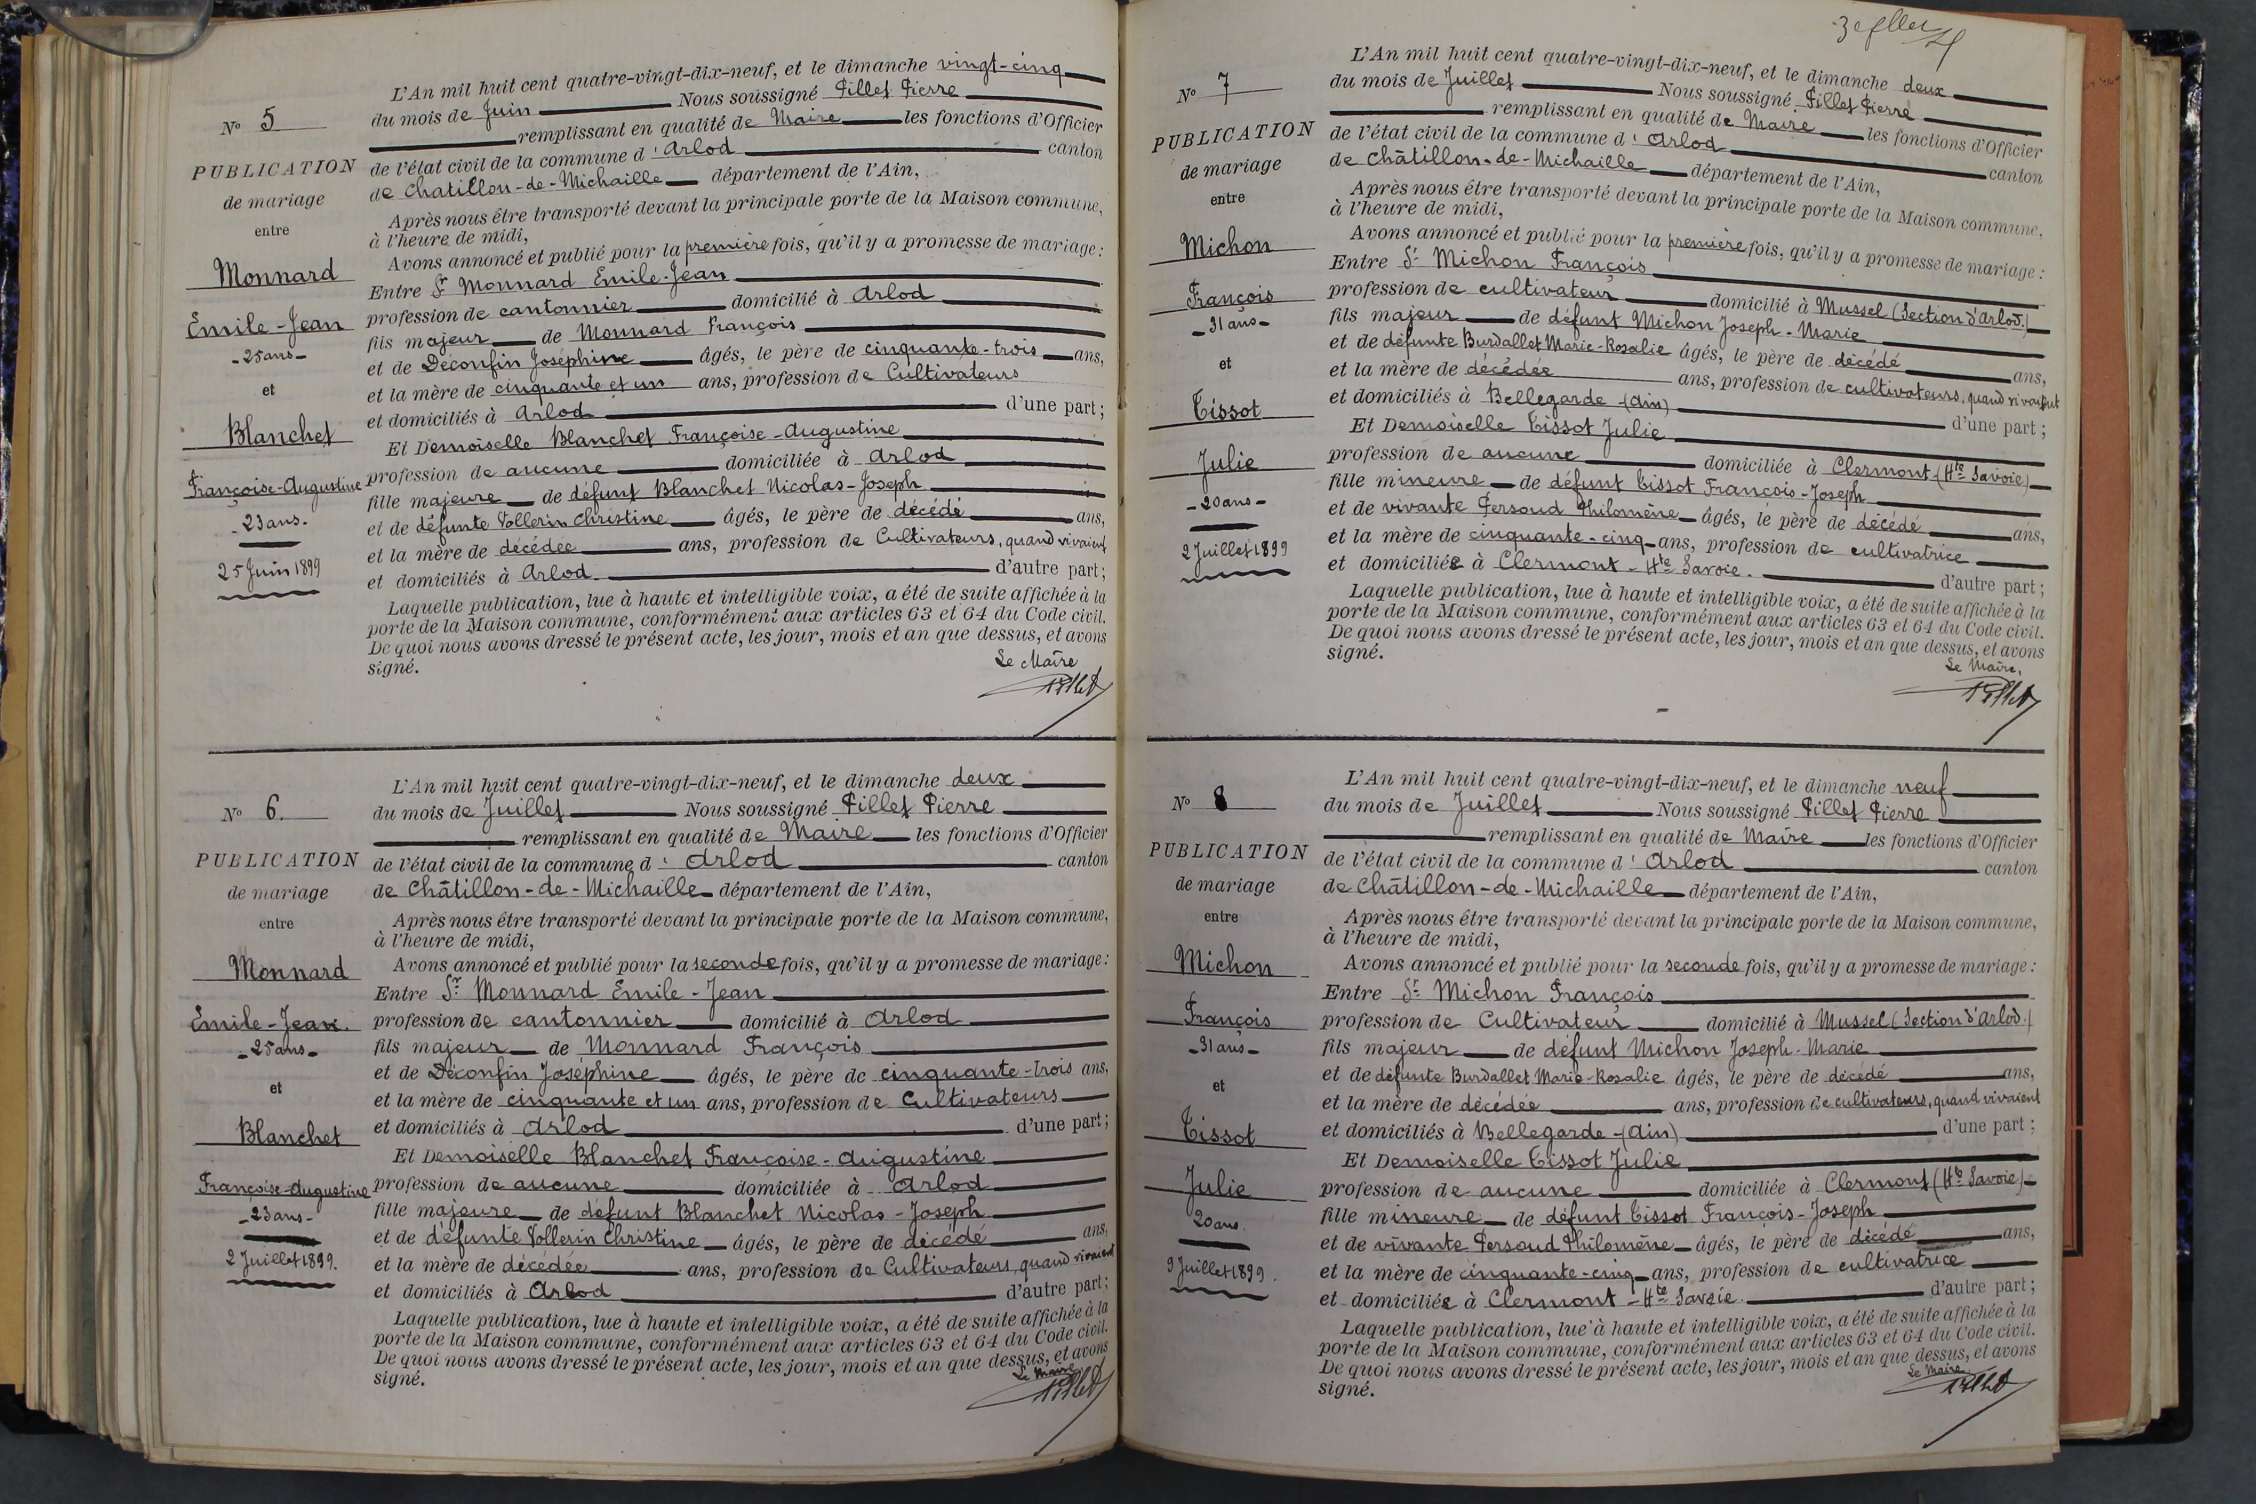 N° 5
PUBLICATION
de mariage
entre
Monnard
Emile-Jean
-25 ans-
et
Blanchet
Françoise-Augustine
-23 ans.
25 Juin 1899
L'An mil huit cent quatre-vingt-dix-neuf, et le dimanche vingt-cinq
du mois de Juin Nous soussigné Pillet Pierre
remplissant en qualité de Maire les fonctions d'Officier
de l'état civil de la commune d' Arlod canton
de Chatillon-de-Michaille département de l'Ain,
Après nous être transporté devant la principale porte de la Maison commune,
à l'heure de midi,
Avons annoncé et publié pour la première fois, qu'il y a promesse de mariage :
Entre Sr Monnard Emile-Jean
profession de cantonnier domicilié à Arlod
fils majeur de Monnard François
et de Déconfin Joséphine âgés, le père de cinquante-trois ans,
et la mère de cinquante et un ans, profession de Cultivateurs
et domiciliés à Arlod d'une part ;
Et Demoiselle Blanchet Françoise-Augustine
profession de aucune domiciliée à Arlod
fille majeure de défunt Blanchet Nicolas-Joseph
et de défunte Vollerin Christine âgés, le père de décédé ans,
et la mère de décédée ans, profession de Cultivateurs, quand vivaient
et domiciliés à Arlod d'autre part ;
Laquelle publication, lue à haute et intelligible voix, a été de suite affichée à la
porte de la Maison commune, conformément aux articles 63 et 64 du Code civil.
De quoi nous avons dressé le présent acte, les jour, mois et an que dessus, et avons
signé.
Le Maire
Pillet
N° 6.
PUBLICATION
de mariage
entre
Monnard
Emile-Jean.
-25 ans-
et
Blanchet
Françoise-Augustine
-23 ans-
2 Juillet 1899.
L'An mil huit cent quatre-vingt-dix-neuf, et le dimanche deux
du mois de Juillet Nous soussigné Pillet Pierre
remplissant en qualité de Maire les fonctions d'Officier
de l'état civil de la commune d' Arlod canton
de Châtillon-de-Michaille département de l'Ain,
Après nous être transporté devant la principale porte de la Maison commune,
à l'heure de midi,
Avons annoncé et publié pour la seconde fois, qu'il y a promesse de mariage :
Entre Sr Monnard Emile-Jean
profession de cantonnier domicilié à Arlod
fils majeur de Monnard François
et de Déconfin Joséphine âgés, le père de cinquante-trois ans,
et la mère de cinquante et un ans, profession de Cultivateurs
et domiciliés à Arlod d'une part ;
Et Demoiselle Blanchet Françoise-Augustine
profession de aucune domiciliée à Arlod
fille majeure de défunt Blanchet Nicolas-Joseph
et de défunte Vollerin Christine âgés, le père de décédé ans,
et la mère de décédée ans, profession de Cultivateurs, quand vivaient
et domiciliés à Arlod d'autre part ;
Laquelle publication, lue à haute et intelligible voix, a été de suite affichée à la
porte de la Maison commune, conformément aux articles 63 et 64 du Code civil.
De quoi nous avons dressé le présent acte, les jour, mois et an que dessus, et avons
signé.
Le Maire
Pillet
N° 7
PUBLICATION
de mariage
entre
Michon
François
-31 ans-
et
Tissot
Julie
-20 ans-
2 Juillet 1899
L'An mil huit cent quatre-vingt-dix-neuf, et le dimanche deux
du mois de Juillet Nous soussigné Pillet Pierre
remplissant en qualité de Maire les fonctions d'Officier
de l'état civil de la commune d' Arlod canton
de Châtillon-de-Michaille département de l'Ain,
Après nous être transporté devant la principale porte de la Maison commune,
à l'heure de midi,
Avons annoncé et publié pour la première fois, qu'il y a promesse de mariage :
Entre Sr Michon François
profession de cultivateur domicilié à Mussel (Section d'Arlod.)
fils majeur de défunt Michon Joseph-Marie
et de défunte Burdallet Marie-Rosalie âgés, le père de décédé ans,
et la mère de décédée ans, profession de cultivateurs, quand vivaient
et domiciliés à Bellegarde-(Ain) d'une part ;
Et Demoiselle Tissot Julie
profession de aucune domiciliée à Clermont (Hte Savoie)
fille mineure de défunt Tissot François-Joseph
et de vivante Persoud Philomène âgés, le père de décédé ans,
et la mère de cinquante-cinq ans, profession de cultivatrice
et domiciliée à Clermont-Hte Savoie. d'autre part ;
Laquelle publication, lue à haute et intelligible voix, a été de suite affichée à la
porte de la Maison commune, conformément aux articles 63 et 64 du Code civil.
De quoi nous avons dressé le présent acte, les jour, mois et an que dessus, et avons
signé.
Le Maire,
Pillet
N° 8
PUBLICATION
de mariage
entre
Michon
François
-31 ans-
et
Tissot
Julie
20 ans.
9 Juillet 1899.
L'An mil huit cent quatre-vingt-dix-neuf, et le dimanche neuf
du mois de Juillet Nous soussigné Pillet Pierre
remplissant en qualité de Maire les fonctions d'Officier
de l'état civil de la commune d' Arlod canton
de Châtillon-de-Michaille département de l'Ain,
Après nous être transporté devant la principale porte de la Maison commune,
à l'heure de midi,
Avons annoncé et publié pour la seconde fois, qu'il y a promesse de mariage :
Entre Sr Michon François
profession de Cultivateur domicilié à Mussel (Section d'Arlod.)
fils majeur de défunt Michon Joseph-Marie
et de défunte Burdallet Marie-Rosalie âgés, le père de décédé ans,
et la mère de décédée ans, profession de cultivateurs, quand vivaient
et domiciliés à Bellegarde-(Ain) d'une part ;
Et Demoiselle Tissot Julie
profession de aucune domiciliée à Clermont (Hte Savoie)
fille mineure de défunt Tissot François-Joseph
et de vivante Persoud Philomène âgés, le père de décédé ans,
et la mère de cinquante-cinq ans, profession de cultivatrice
et domiciliée à Clermont-Hte Savoie. d'autre part ;
Laquelle publication, lue à haute et intelligible voix, a été de suite affichée à la
porte de la Maison commune, conformément aux articles 63 et 64 du Code civil.
De quoi nous avons dressé le présent acte, les jour, mois et an que dessus, et avons
signé.
Le Maire
Pillet